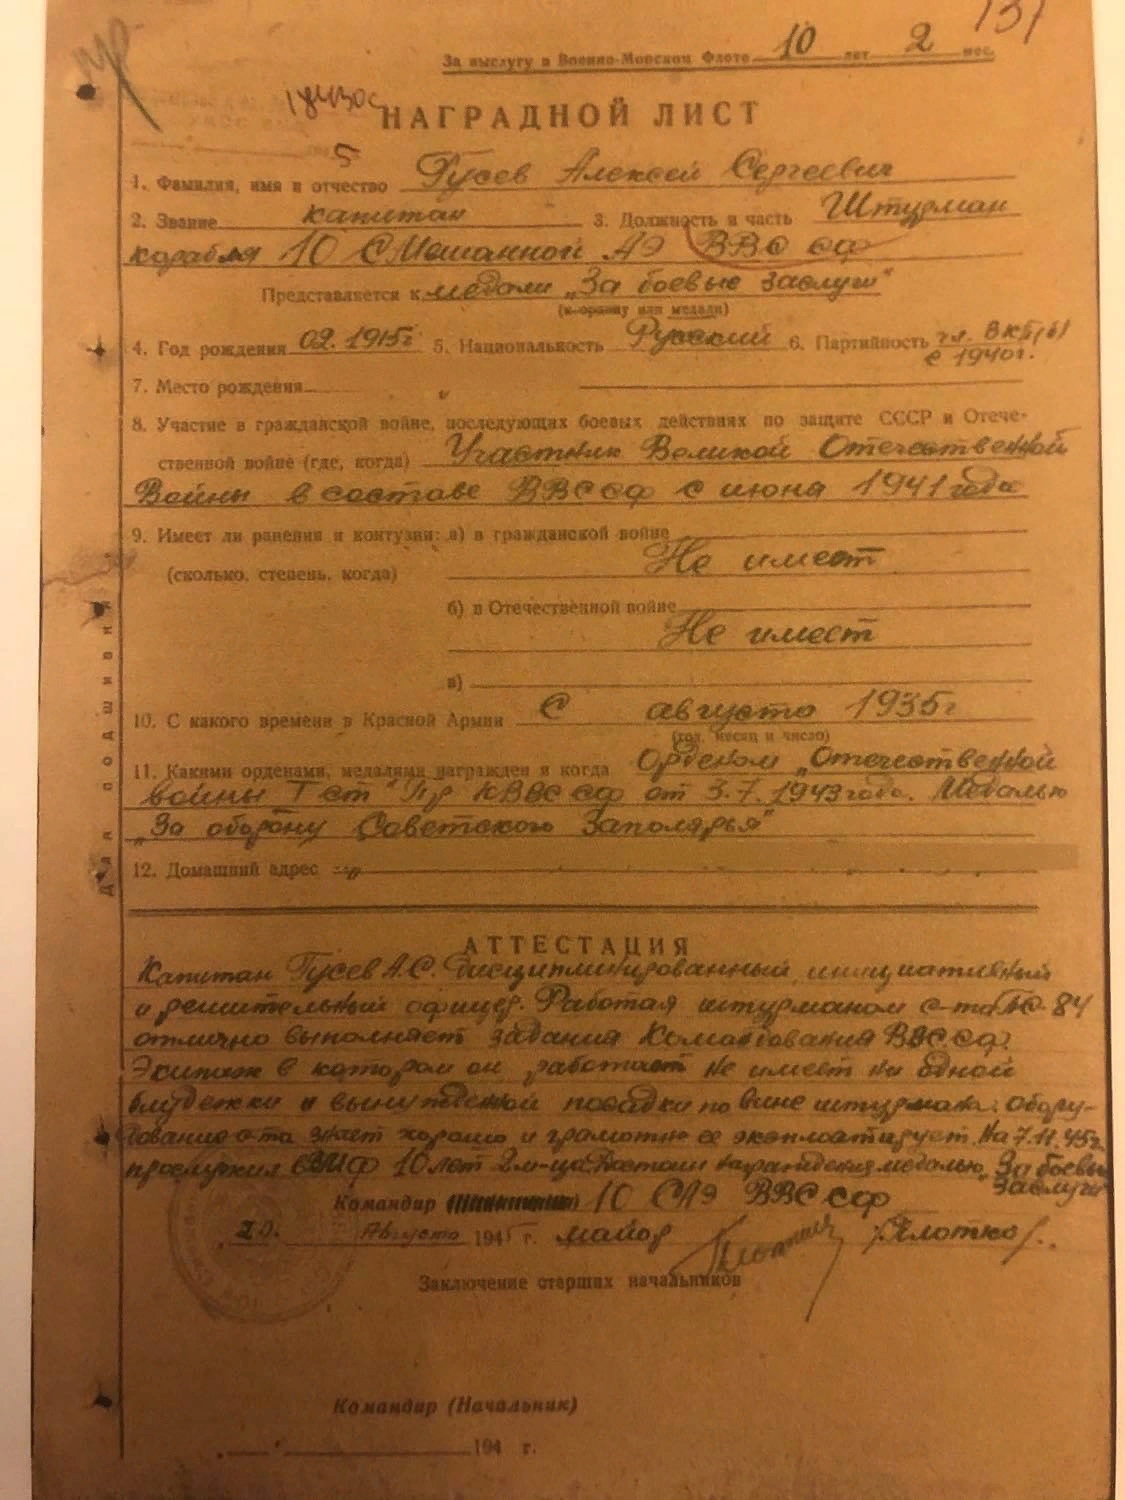 131
За выслугу в Военно-Морском Флоте 10 лет 2 мес.
НАГРАДНОЙ ЛИСТ
5
1. Фамилия, имя и отчество Гусев Алексей Сергеевич
2. Звание капитан 3. Должность и часть Штурман
корабля 10 Смешанной АЭ ВВС СФ
Представляется к медали „За боевые заслуги"
(к ордену или медали)
4. Год рождения 02.1915г 5. Национальность Русский 6. Партийность чл. ВКП(б)
с 1940г.
7. Место рождения
8. Участие в гражданской войне, последующих боевых действиях по защите СССР и Отече-
ственной войне (где, когда) Участник Великой Отечественной
Войны в составе ВВС СФ с июня 1941 года
9. Имеет ли ранения и контузии: а) в гражданской войне
Не имеет
(сколько, степень, когда)
б) в Отечественной войне
Не имеет
в)
10. С какого времени в Красной Армии С августа 1935г
(год, месяц и число)
11. Какими орденами, медалями награжден и когда Орденом „Отечественной
войны I ст" Пр КВВС СФ от 3.7.1943 года. Медалью
„За оборону Советского Заполярья"
12. Домашний адрес
Для подшивки
АТТЕСТАЦИЯ
Капитан Гусев А.С. Дисциплинированный, инициативный
и решительный офицер. Работая штурманом с-та 84
отлично выполняет задания Командования ВВС СФ.
Экипаж в котором он работает не имеет ни одной
блудежки и вынужденной посадки по вине штурмана. Обору-
дование с-та знает хорошо и грамотно ее эксплоатирует. На 7.11.45г.
прослужил в 10 лет 2 м-ца. Достоин награждения медалью „За боевые
Заслуги"
Командир 10 САЭ ВВС СФ
20. Августа 1945 г. майор /Плотко/.
Заключение старших начальников
Командир (Начальник)
194 г.